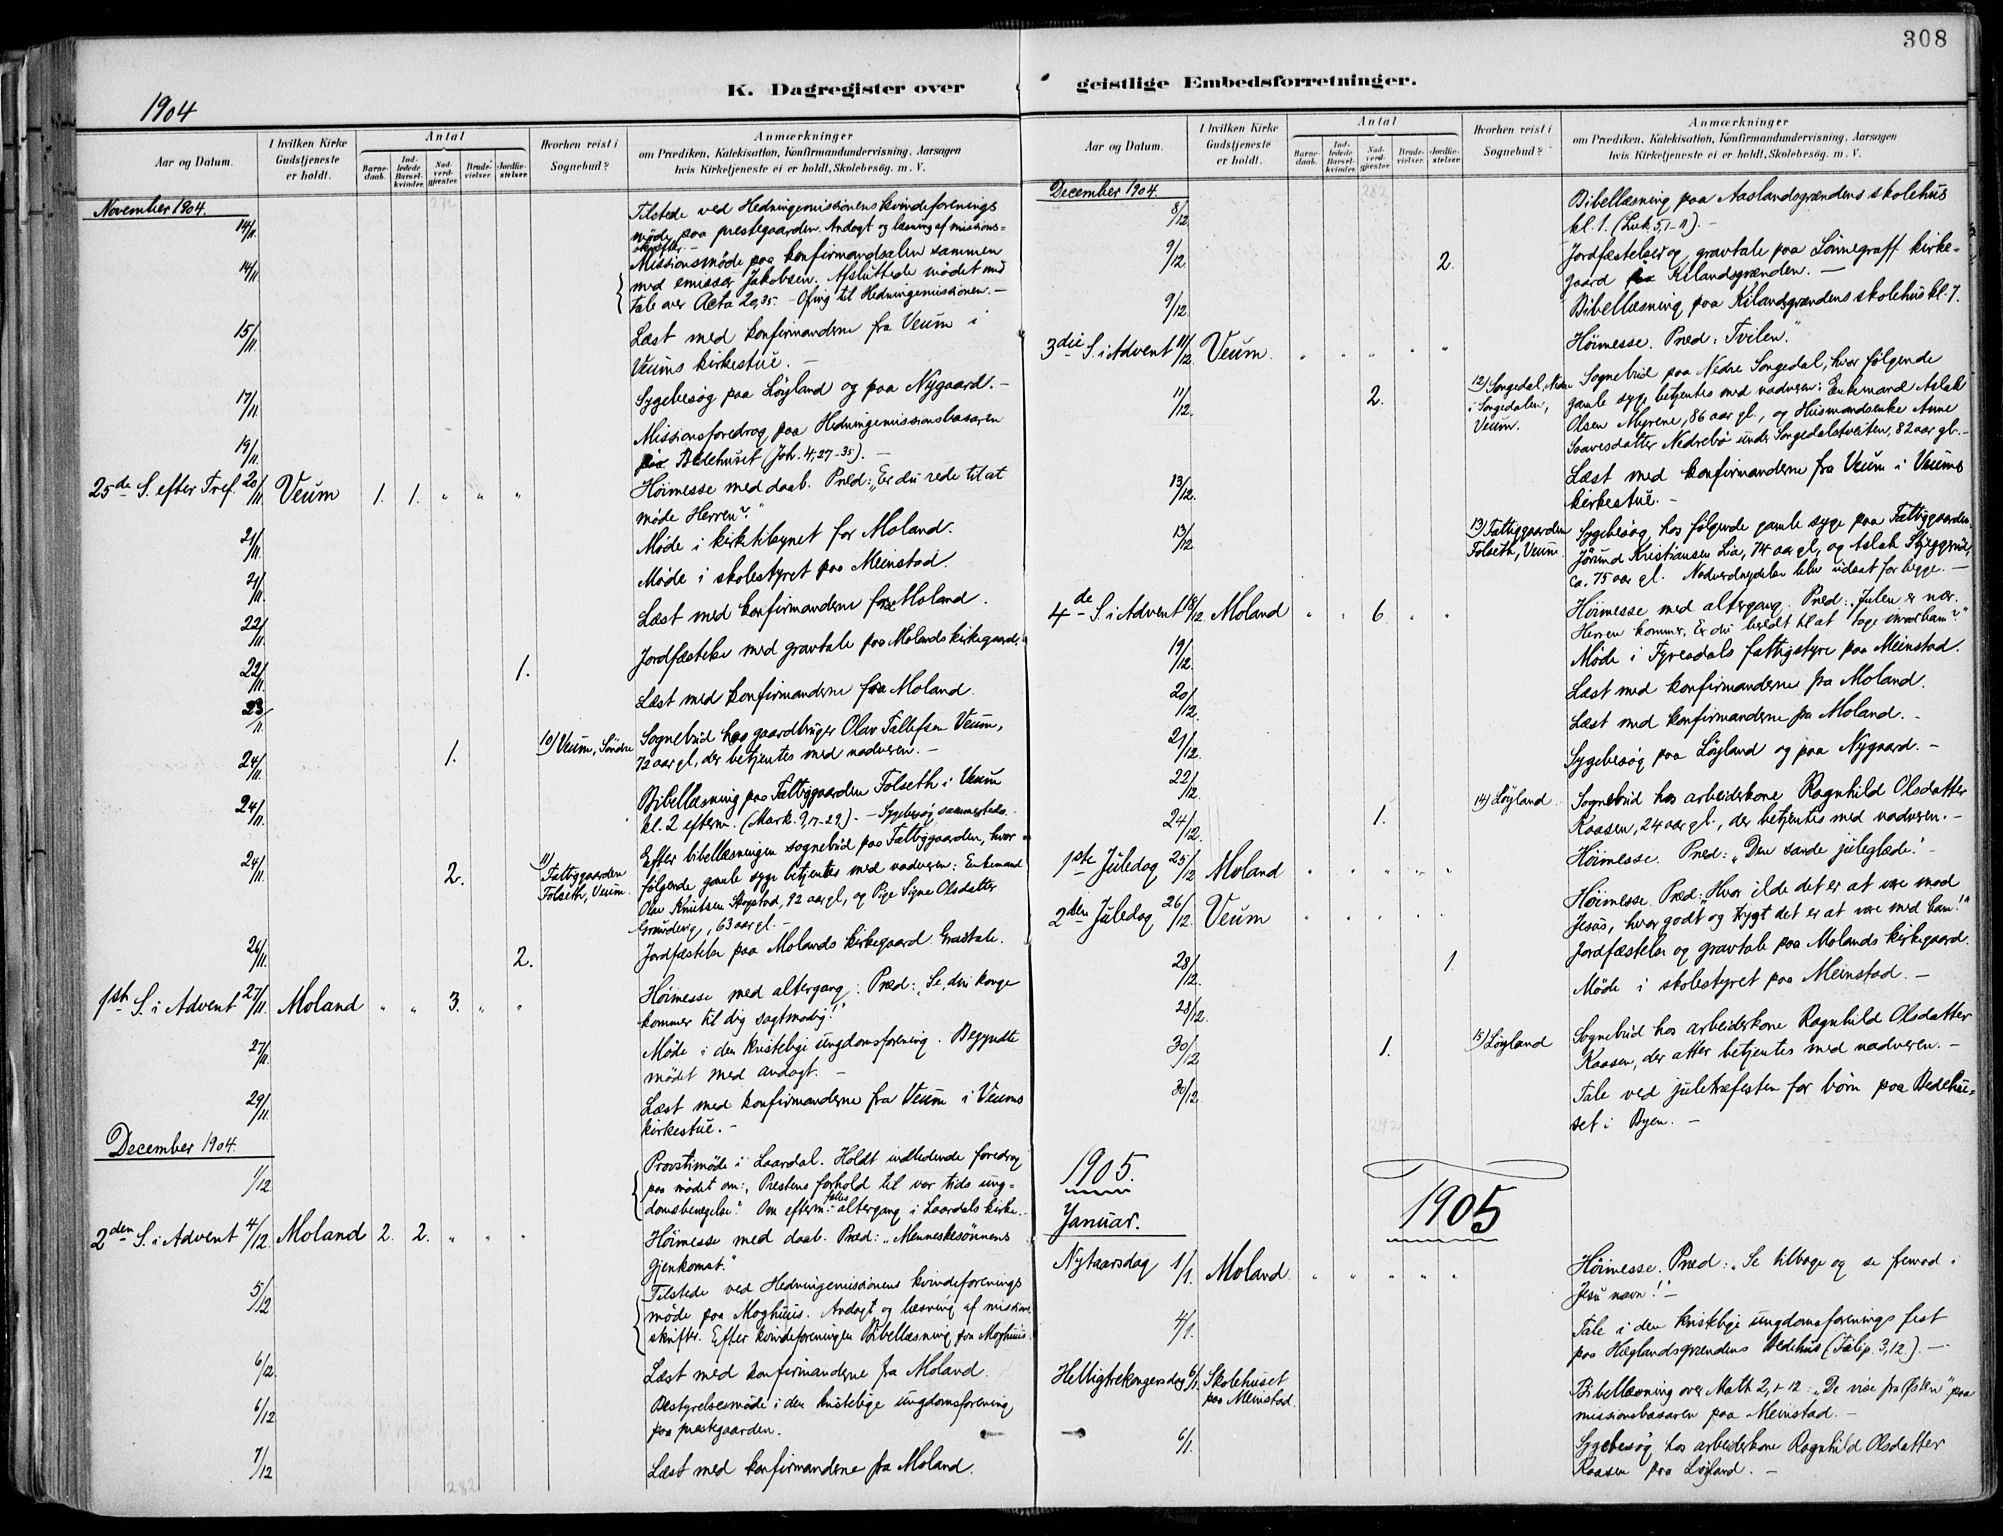 308
K. Dagregister over geistlige Embedsforretninger.
1904
Aar og Datum.
I hvilken Kirke Gudstjeneste er holdt.
Antal
Barnedaab.
Indledede Barselkvinder.
Nadverdgjæster.
Brudevielser.
Jordfæstelser
Hvorhen reist i Sognebud?
Anmærkninger
om Prædiken, Katekisation, Konfirmandundervisning, Aarsagen
hvis Kirketjeneste ei er holdt, Skolebesøg. m. V.
November 1904.
14/11. Tilstede ved Hedningemissionens kvindeforenings
møde paa prestegaarden. Andagt og læsning af missions-
skrifter. –
14/11. Missionsmøde paa konfirmandsalen sammen
med emissær Jakobsen. Afsluttede mødet med
tale over Acta 20,35. – Ofring til Hedningemissionen. –
15/11. Læst med konfirmanderne fra Veum i
Veums kirkestue. –
17/11. Sygebesøg paa Løyland og paa Nygaard. –
19/11. Missionsforedrag paa Hedningemissionsbasaren
paa Bedehuset (Joh. 4,27-35). –
25de S. efter Tref. 20/11. Veum 1. 1. „ „ „ Høimesse med daab. Præd: „Er du rede til at
møde Herren?"
21/11. Møde i kirketilsynet for Moland.
21/11. Møde i skolestyret paa Meinstad.
22/11. Læst med konfirmanderne fra Moland.
22/11. 1. Jordfæstelse med gravtale paa Molands kirkegaard.
23/11 Læst med konfirmanderne fra Moland.
24/11. 1. 10) Veum, Søndre Sognebud hos gaardbruger Olav Tallefsen Veum,
72 aar gl, der betjentes med nadveren. –
24/11. Bibellæsning paa Fattiggaarden Folseth i Veum
kl. 2 efterm. (Mark. 9,17-29). – Sygebesøg sammesteds.
24/11. 2. 11) Fattiggaarden Folseth, Veum. Efter bibellæsningen sognebud paa Fattiggaarden, hvor
følgende gamle syge betjentes med nadveren: Enkemand
Olav Knutsen 92 aar gl, og Pige Signe Olsdatter
63 aar gl. –
26/11. 2. Jordfæstelse paa Molands kirkegaard
1ste S. i Advent 27/11. Moland „ „ 3. „ „ Høimesse med altergang. Præd: „Se, din konge
kommer til dig sagtmodig!"
27/11. Møde i den kristelige ungdomsforening. Begyndte
mødet med andagt. –
29/11. Læst med konfirmanderne fra Veum i Veums
kirkestue. –
December 1904.
1/12. Provstimøde i Laardal. Holdt indledende foredrag
paa mødet om: „Prestens forhold til vor tids ung-
domsbevægelse." Om efterm. fælles altergang i Laardals kirke. –
2den S. i Advent 4/12. Moland 2. 2. „ „ „ Høimesse med daab. Præd: „Menneskesønnens
Gjenkomst."
5/12 Tilstede ved Hedningemissionens kvindeforenings
møde paa Moghuus. Andagt og læsning af missions-
skrifter. Efter kvindeforeningen Bibellæsning paa Moghuus.
6/12. Læst med konfirmanderne fra Moland.
6/12 Bestyrelsesmøde i den kristelige ungdomsforening
paa prestegaarden.
7/12 Læst med konfirmanderne fra Moland.
282
Aar og Datum.
I hvilken Kirke Gudstjeneste er holdt.
Antal
Barnedaab.
Indledede Barselkvinder.
Nadverdgjæster.
Brudevielser.
Jordfæstelser
Hvorhen reist i Sognebud?
Anmærkninger
om Prædiken, Katekisation, Konfirmandundervisning, Aarsagen
hvis Kirketjeneste ei er holdt, Skolebesøg. m. V.
December 1904.
282
8/12. Bibellæsning paa Aaslandsgrændens skolehus
kl. 1. (Luk. 5,1-11). –
9/12. 2. Jordfæstelser og gravtale paa Lønnegraff kirke-
gaard Kilandsgrænden. –
9/12. Bibellæsning paa Kilandsgrændens skolehus kl. 7.
3die S. i Advent 11/12. Veum. „ „ „ „ „ Høimesse. Præd: Tvilen."
11/12. 2. 12) Songedal, Nedre i Songedalen, Veum. Sognebud paa Nedre Songedal, hvor følgende
gamle syge betjentes med nadveren: Enkemand Aslak
Olsen Myrene, 86 aar gl., og Husmandsenke Anne
Saavesdatter Nedrebø under Songedalstveiten, 82 aar gl. –
13/12. Læst med konfirmanderne fra Veum i Veums
kirkestue. –
13/12 13) Fattiggaarden Folseth, Veum Sygebesøg hos følgende gamle syge paa Fattiggaarden:
Jørund Kristiansen Lia, 74 aar gl, og Aslak
ca. 75 aar gl. Nadverdnydelse blev udsat for begge. –
4de S. i Advent 18/12. Moland „ „ 6. „ „ Høimesse med altergang. Præd: „Julen er nær.
Herren kommer. Er du beredt til at tage imod ham?"
19/12. Møde i Fyresdals fattigstyre paa Meinstad.
20/12. Læst med konfirmanderne fra Moland.
21/12. Læst med konfirmanderne fra Moland. –
22/12. Sygebesøg paa Løyland og paa Nygaard. –
24/12. 1. 14) Løyland. Sognebud hos arbeiderkone Ragnhild Olsdatter
Kaasen, 24 aar gl., der betjentes med nadveren. –
1ste Juledag 25/12 Moland „ „ „ „ „ Høimesse. Præd: „Den sande juleglæde." –
2den Juledag 26/12. Veum „ „ „ „ „ Høimesse. Præd: „Hvor ilde det er at være mod
Jesus, hvor godt og trygt det er at være med ham!"
28/12. 1. Jordfæstelse og gravtale paa Molands kirkegaard.
28/12. Møde i skolestyret paa Meinstad. –
30/12 1. 15) Løyland Sognebud hos arbeiderkone Ragnhild Olsdatter
Kaasen, der atter betjentes med nadveren. –
30/12. Tale ved juletræfesten for børn paa Bedehu-
set i Byen. –
292
1905.
1905
Januar.
Nytaarsdag 1/1. Moland. „ „ „ „ „ Høimesse. Præd: „Se tilbage og se fremad i
Jesu navn!" –
4/1. Tale i den kristelige ungdomsforenings fest
paa Hæglandsgrændens Bedehus (Filip. 3,12). –
Helligtrekongersdag 6/1. Skolehuset paa Meinstad. Bibellæsning over Math 2,1-12: „De vise fra Østen" paa
missionsbasaren paa Meinstad. –
6/1. Sygebesøg hos arbeiderkone Ragnhild Olsdatter
Kaasen paa Løyland. –